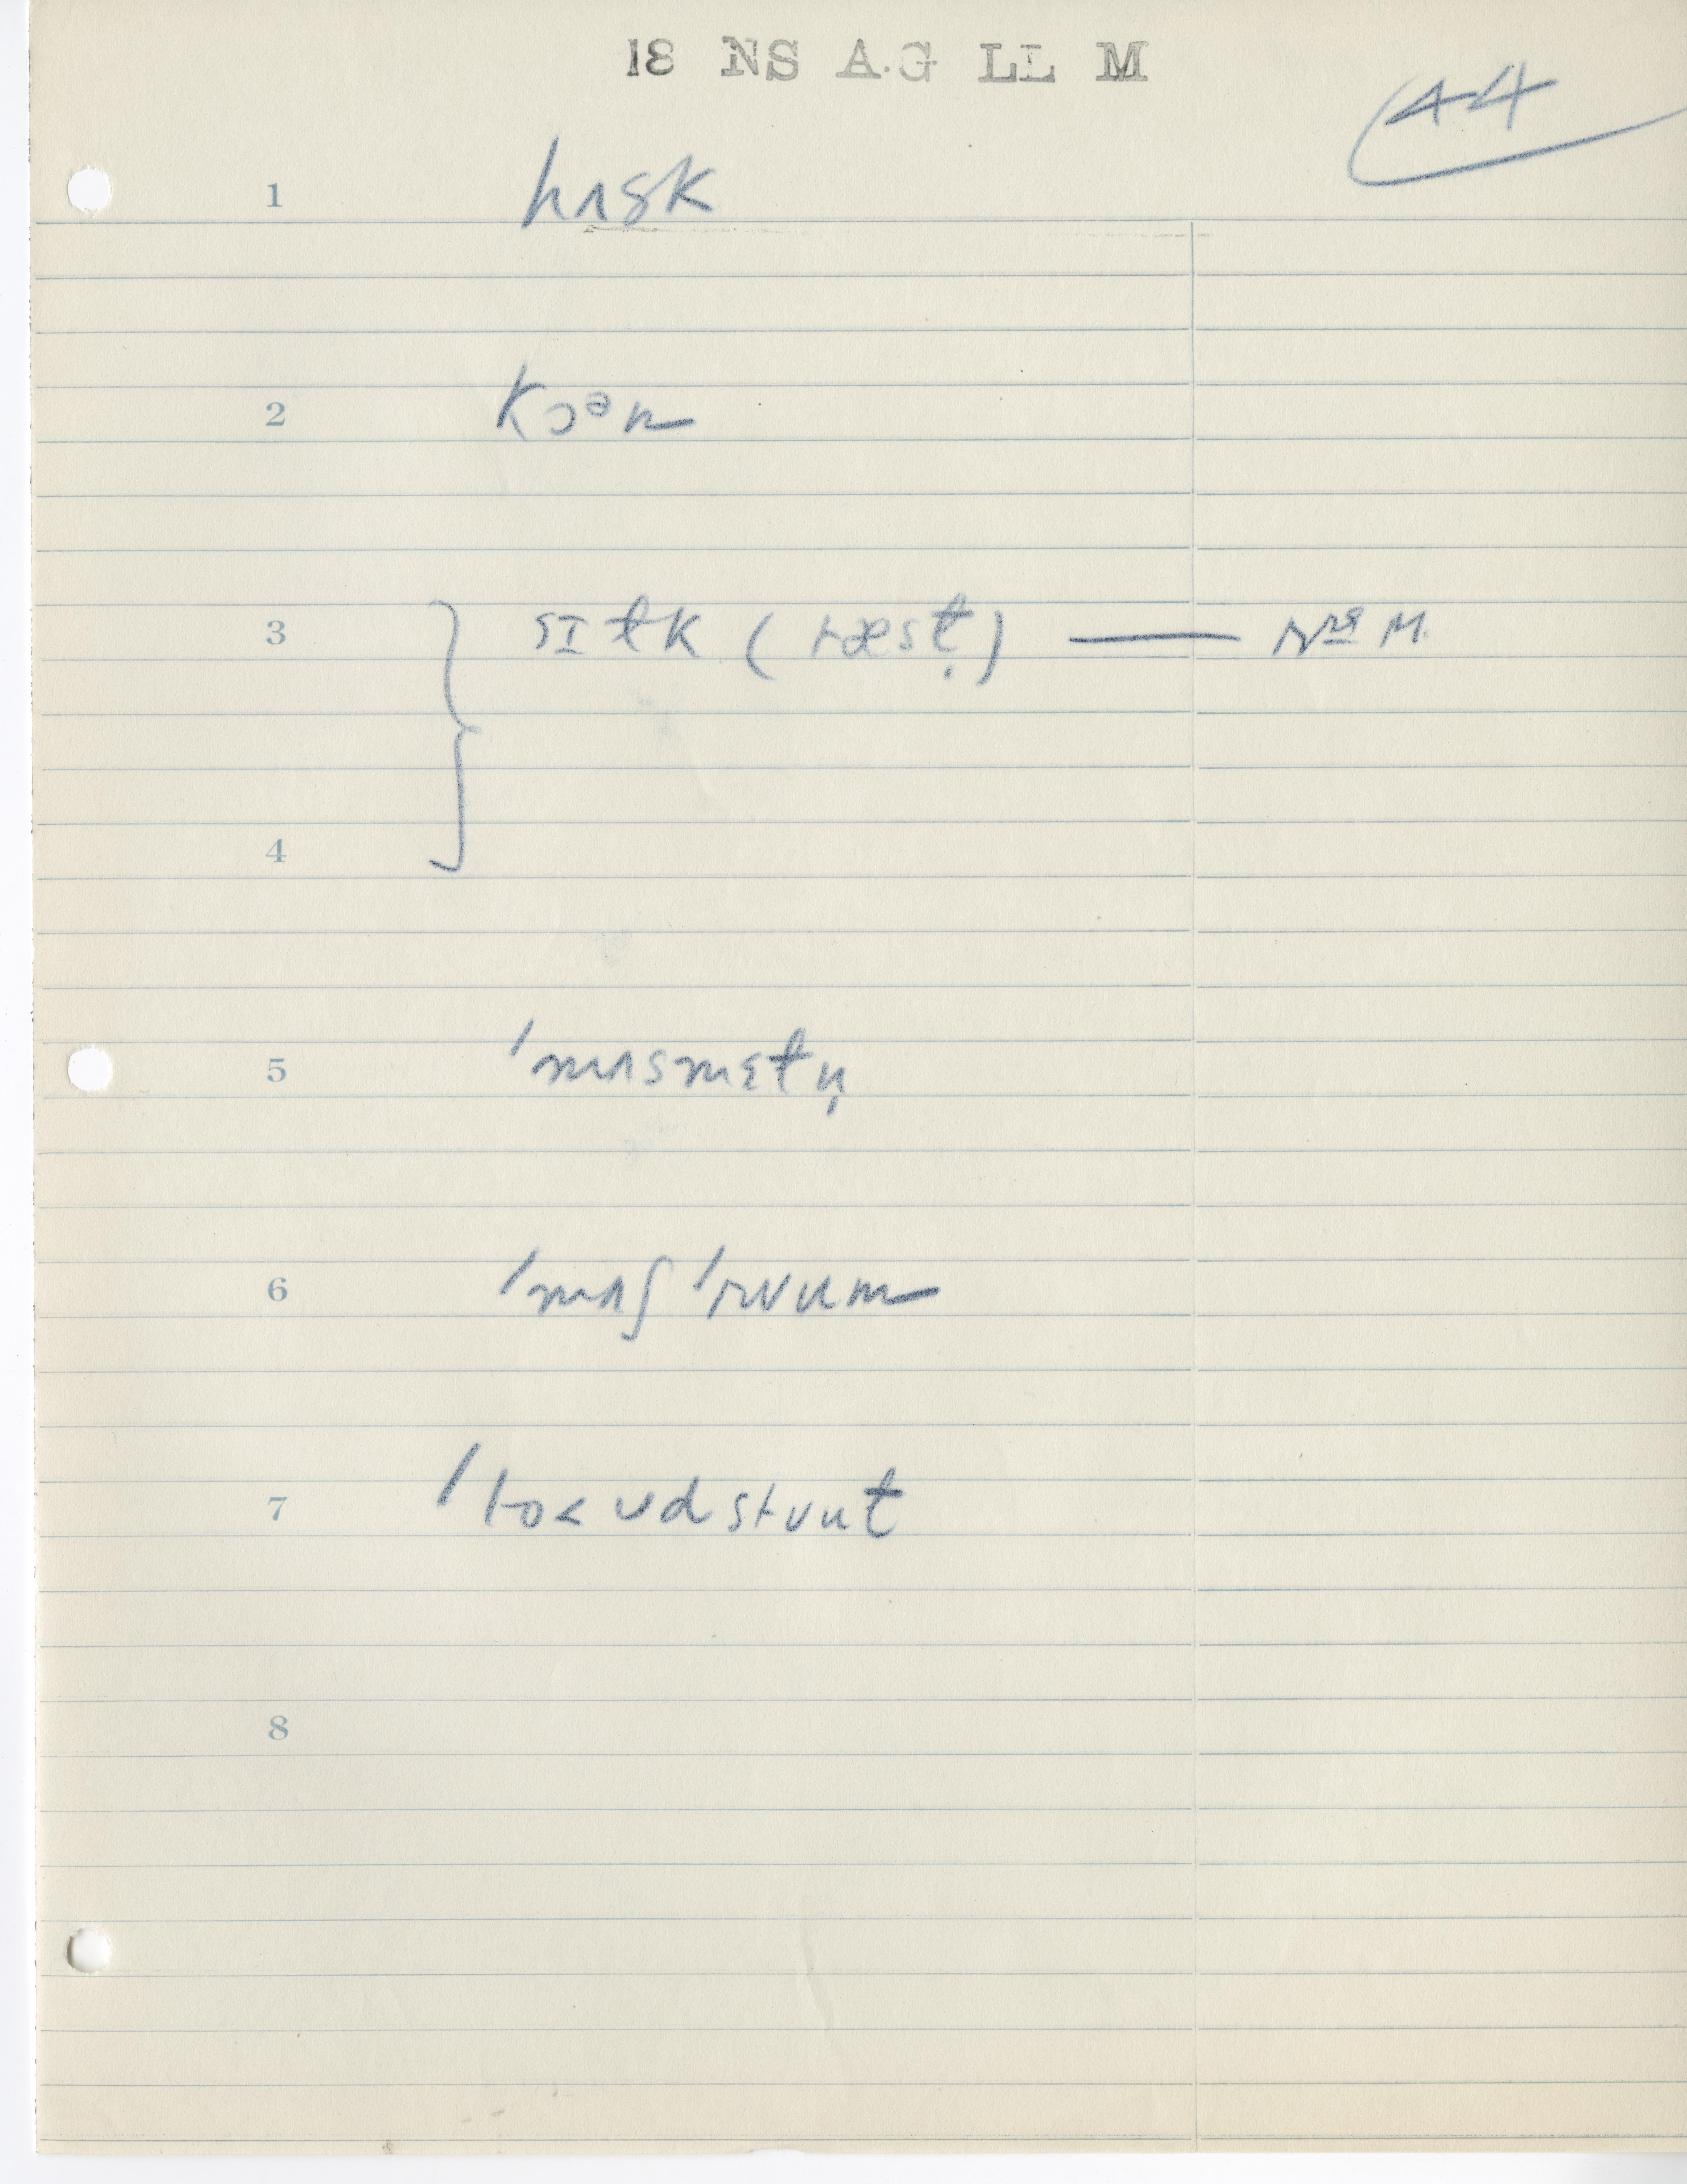 18 NS A.G LL M
44
1 hʌsk
2 kɔᵊn
3 sɪtk (ræst̬) — Mrs M.
4
5 ˈmʌsmɛtn̩
6 ˈmʌʃˈrʊum
7 ˈtoʊdstʊut
8